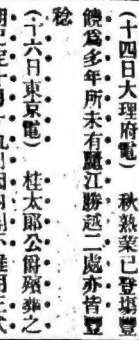 （十四日大理府電）　秋熟業已登場豐
饒爲多年所未有麗江勝越二處亦皆豐
稔
（十六日東京電）　桂太郎公爵殯葬之